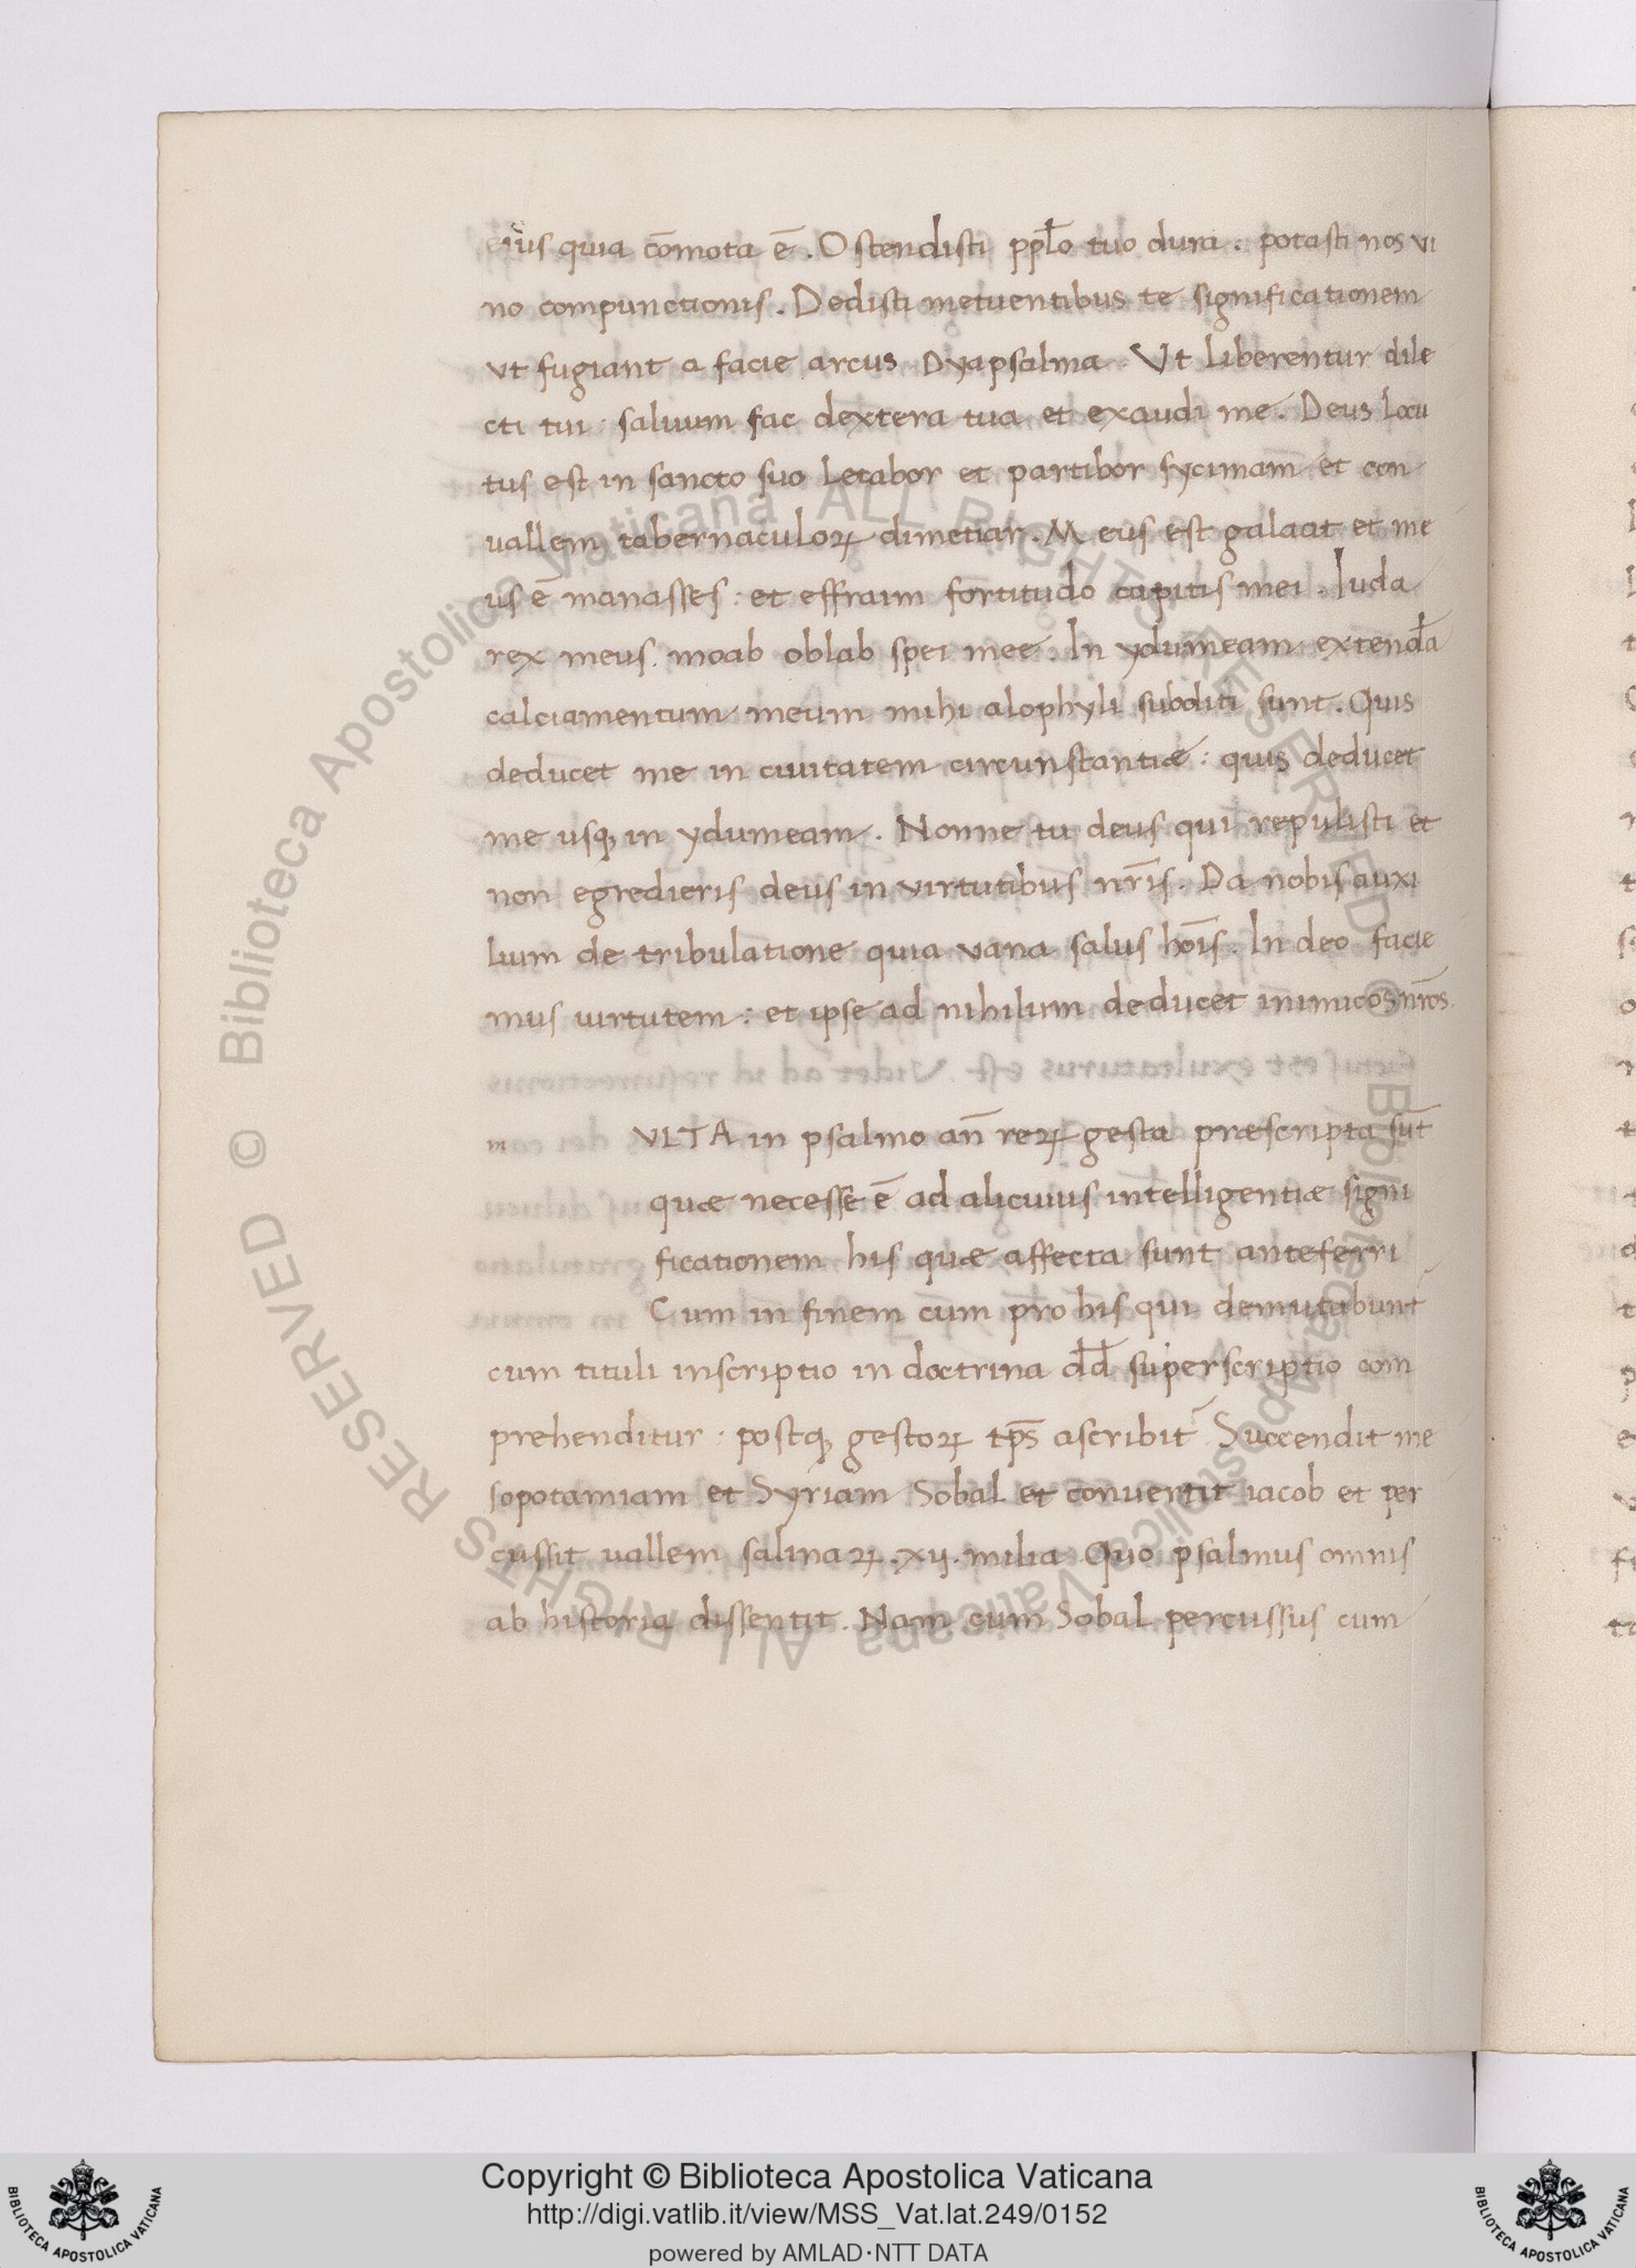 eius quia cōmota ē . Ostendisti pp̄lo tuo dura . potasti nos vi
no compunctionis . Dedisti metuentibus te significationem
vt fugiant a facie arcus Dyapsalma . Vt liberentur dile
cti tui : saluum fac dextera tua et exaudi me . Deus locu
tus est in sancto suo letabor et partibor sycimam et con
uallem tabernaculoꝝ dimetiar . Meus est galaat et me
us ē manasses : et effraim fortitudo capitis mei . Iuda
rex meus . moab oblab spei mee . In ydumeam extendā
calciamentum meum mihi alophyli subditi sunt . Quis
deducet me in ciuitatem circunstantiæ : quis deducet
me usqꝫ in ydumeam . Nonne tu deus qui repulisti et
non egredieris deus in virtutibus nr̄is . Da nobis auxi
lium de tribulatione quia vana salus hoīs . In deo facie
mus uirtutem : et ipse ad nihilum deducet inimicos nr̄os .
m VLTA in psalmo an̄ reꝝ gesta præscripta sūt
quæ necesse ē ad alicuius intelligentiæ signi
ficationem his quæ affecta sunt anteferri
Cum in finem cum pro his qui demutabunt̄
cum tituli inscriptio in doctrina dd̄ superscriptio com
prehenditur : postqꝫ gestoꝝ tp̄s ascribit̄ Succendit me
sopotamiam et Syriam Sobal et conuertit iacob et per
cussit uallem salinaꝝ . xij . milia Quo psalmus omnis
ab historia dissentit . Nam cum Sobal percussus cum
© Biblioteca Apostolica Vaticana ALL RIGHTS RESERVED
© Biblioteca Apostolica Vaticana ALL RIGHTS RESERVED
Copyright © Biblioteca Apostolica Vaticana
http://digi.vatlib.it/view/MSS_Vat.lat.249/0152
powered by AMLAD·NTT DATA
BIBLIOTECA APOSTOLICA VATICANA
BIBLIOTECA APOSTOLICA VATICANA